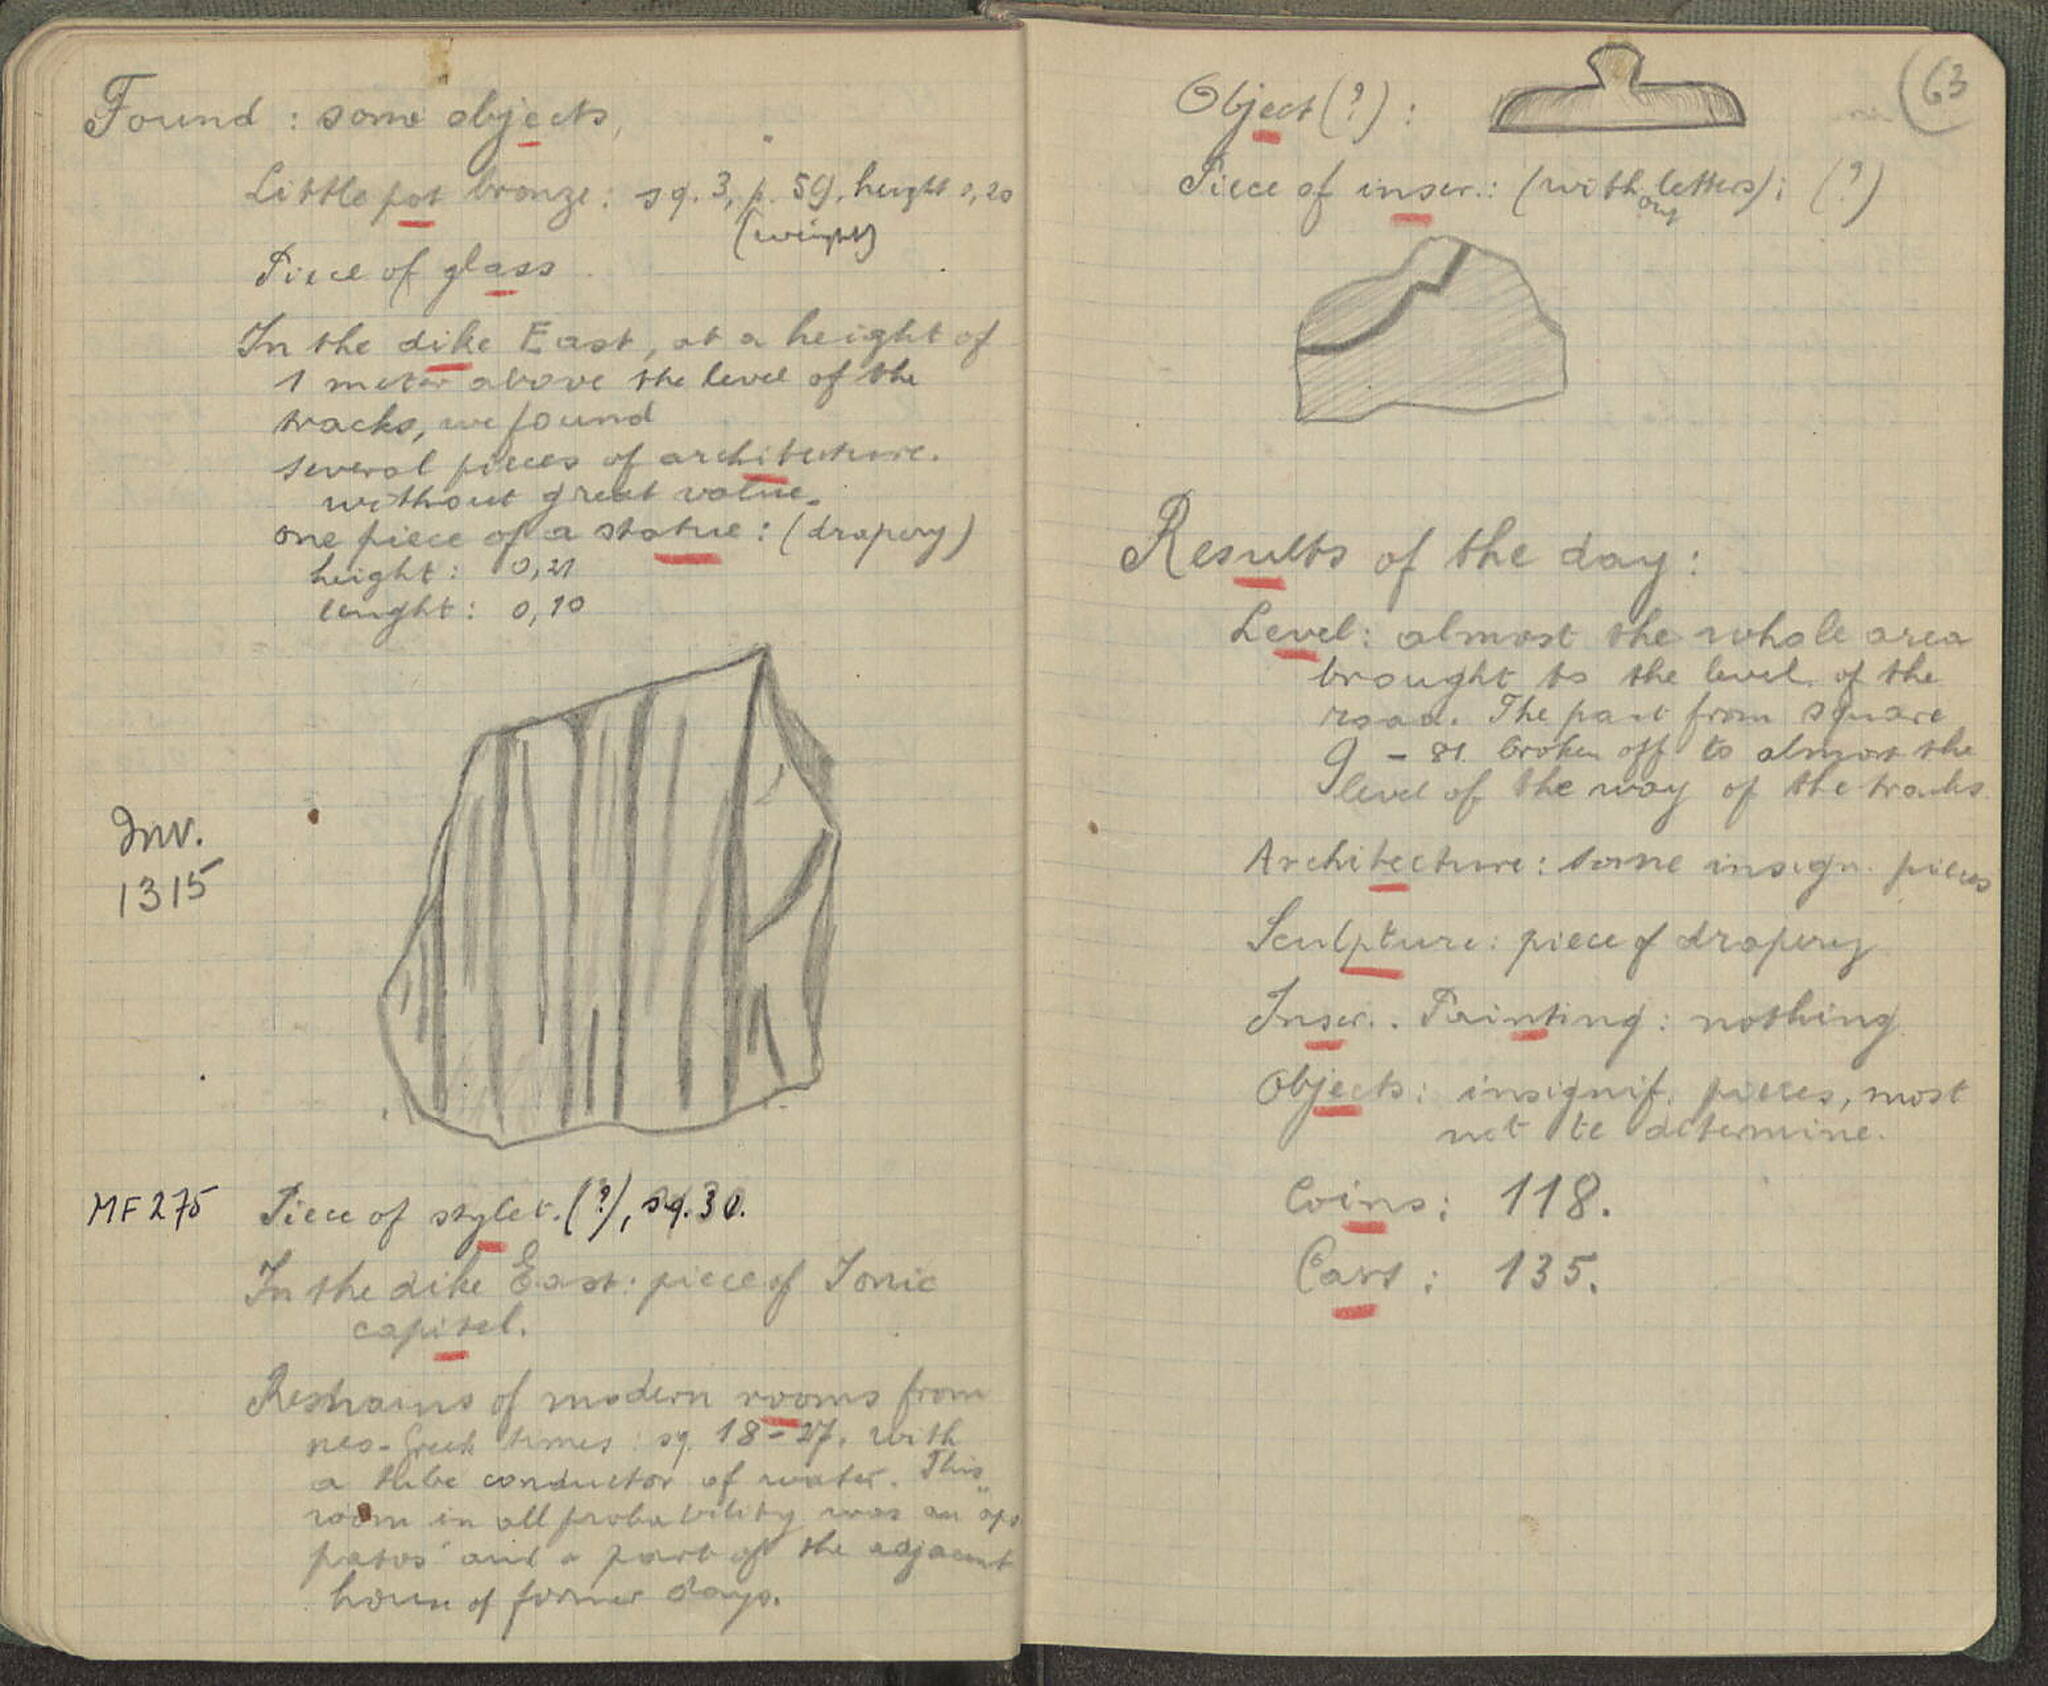 Found : some objects,
Little pot bronze : sq. 3, p. 59, height 0,20
(weight)
Piece of glass
In the dike East, at a height of
1 meter above the level of the
tracks, we found
several pieces of architecture.
without great value.
one piece of a statue : (drapery)
height : 0,21
lenght : 0,10
Inv.
1315
MF 275 Piece of stylet. (?), sq. 30.
In the dike East : piece of Ionic
capitel.
Remains of modern rooms from
neo-Greek times : sq. 18 - 27. with
a tube conductor of water. This
room in all probability was an
and a part of the adjacent
house of former days.
63
Object (?) :
Piece of inscr. : (without letters) ; (?)
Results of the day :
Level : almost the whole area
brought to the level of the
road. The part from square
9 - 81 broken off to almost the
level of the way of the tracks.
Architecture : some insign. pieces
Sculpture : piece of drapery
Inscr. . Painting : nothing
Objects : insignif. pieces, most
not te determine.
Coins : 118.
Cars : 135.